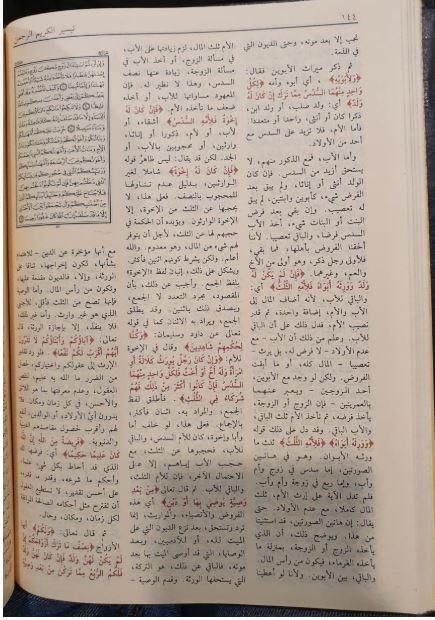 ١٤٤
تيسير الكريم الرحمن
يجب إلا بعد موته، وحتى الديون التي
في الذمة.
ثم ذكر ميراث الأبوين فقال:
﴿وَلِأَبَوَيْهِ﴾ ، أي أبوه وأمه ﴿لِكُلِّ
وَاحِدٍ مِنْهُمَا السُّدُسُ مِمَّا تَرَكَ إِنْ كَانَ لَهُ
وَلَدٌ﴾ أي: ولد صلب، أو ولد ابن،
ذكرا كان أو أنثى، واحدا أو متعددا.
فأما الأم، فلا تزيد على السدس مع
أحد من الأولاد.
وأما الأب، فمع الذكور منهم، لا
يستحق أزيد من السدس. فإن كان
الولد أنثى أو إناثا، ولم يبق بعد
الفرض شيء، كأبوين وابنتين، لم يبق
له تعصيب. وإن بقي بعد فرض
البنت أو البنات شيء، أخذ الأب
السدس فرضا، والباقي تعصيبا. لأننا
ألحقنا الفروض بأهلها، فما بقي،
فلأولى رجل ذكر، وهو أولى من الأخ
والعم، وغيرهما. ﴿فَإِنْ لَمْ يَكُنْ لَهُ
وَلَدٌ وَوَرِثَهُ أَبَوَاهُ فَلِأُمِّهِ الثُّلُثُ﴾ أي:
والباقي للأب، لأنه أضاف المال إلى
الأب والأم، إضافة واحدة، ثم قدر
نصيب الأم، فدل ذلك على أن الباقي
للأب. وعلم من ذلك أن الأب – مع
عدم الأولاد – لا فرض له، بل يرث –
تعصيبا – المال كله، أو ما أبقت
الفروض. ولكن لو وجد مع الأبوين،
أحد الزوجين – ويعبر عنهما
بالعمريتين – فإن الزوج أو الزوجة،
يأخذ فرضه، ثم تأخذ الأم ثلث الباقي،
والأب الباقي. وقد دل على ذلك قوله
﴿وَوَرِثَهُ أَبَوَاهُ﴾ ﴿فَلِأُمِّهِ الثُّلُثُ﴾ ثلث ما
ورثه الأبوان. وهو في هاتين
الصورتين، إما سدس في زوج وأم
وأب، وإما ربع في زوجة وأم وأب.
فلم تدل الآية على إرث الأم، ثلث
المال كاملا، مع عدم الأولاد. حتى
يقال: إن هاتين الصورتين، قد استثنيتا
من هذا. ويوضح ذلك، أن الذي
يأخذه الزوج أو الزوجة، بمنزلة ما
يأخذه الغرماء، فيكون من رأس المال.
والباقي، بين الأبوين. ولأنا لو أعطينا
الأم ثلث المال، لزم زيادتها على الأب،
في مسألة الزوج، أو أخذ الأب في
مسألة الزوجة، زيادة عنها نصف
السدس، وهذا لا نظير له. فإن
المعهود مساواتها للأب، أو أخذه
ضعف ما تأخذه الأم. ﴿فَإِنْ كَانَ لَهُ
إِخْوَةٌ فَلِأُمِّهِ السُّدُسُ﴾ أشقاء، أو
لأب، أو لأم، ذكورا أو إناثا،
وارثين، أو محجوبين بالأب، أو
الجد. لكن قد يقال: ليس ظاهر قوله
﴿فَإِنْ كَانَ لَهُ إِخْوَةٌ﴾ شاملا لغير
الوارثين، بدليل عدم تناولها
للمحجوب بالنصف. فعلى هذا، لا
يحجبها عن الثلث من الإخوة، إلا
الإخوة الوارثون. ويؤيده أن الحكمة في
حجبهم لها عن الثلث، لأجل أن يتوفر
لهم شيء من المال، وهو معدوم. والله
أعلم. ولكن بشرط كونهم اثنين فأكثر.
ويشكل على ذلك، إتيان لفظ «الإخوة»
بلفظ الجمع. وأجيب عن ذلك، بأن
المقصود، مجرد التعدد لا الجمع،
ويصدق ذلك باثنين. وقد يطلق
الجمع، ويراد به الاثنان كما في قوله
تعالى عن داود وسليمان: ﴿وَكُنَّا
لِحُكْمِهِمْ شَاهِدِينَ﴾ وقال في الإخوة
للأم: ﴿وَإِنْ كَانَ رَجُلٌ يُورَثُ كَلَالَةً أَوِ
امْرَأَةٌ وَلَهُ أَخٌ أَوْ أُخْتٌ فَلِكُلِّ وَاحِدٍ مِنْهُمَا
السُّدُسُ فَإِنْ كَانُوا أَكْثَرَ مِنْ ذَلِكَ فَهُمْ
شُرَكَاءُ فِي الثُّلُثِ﴾. فأطلق لفظ
الجمع، والمراد به، اثنان فأكثر،
بالإجماع. فعلى هذا، لو خلف أما
وأبا وإخوة، كان للأم السدس، والباقي
للأب، فحجبوها عن الثلث، مع
حجب الأب إياهم، إلا على
الاحتمال الآخر، فإن للأم الثلث،
والباقي للأب. ثم قال تعالى ﴿مِنْ بَعْدِ
وَصِيَّةٍ يُوصِي بِهَا أَوْ دَيْنٍ﴾ أي: هذه
الفروض والأنصباء، والمواريث، إنما
ترد وتستحق، بعد نزع الديون التي على
الميت لله، أو للآدميين، وبعد
الوصايا، التي قد أوصى الميت بها بعد
موته، فالباقي عن ذلك، هو التركة،
التي يستحقها الورثة. وقدم الوصية –
مع أنها مؤخرة عن الدين – للاهتمام
بشأنها، لكون إخراجها، شاقا على
الورثة، وإلا، فالديون مقدمة عليها،
وتكون من رأس المال. وأما الوصية
فإنها تصح من الثلث فأقل، للأجنبي
الذي هو غير وارث. وأما غير ذلك،
فلا ينفذ، إلا بإجازة الورثة، قال
تعالى: ﴿آبَاؤُكُمْ وَأَبْنَاؤُكُمْ لَا تَدْرُونَ
أَيُّهُمْ أَقْرَبُ لَكُمْ نَفْعًا﴾. فلو رد تقدير
الإرث إلى عقولكم واختياركم، لحصل
من الضرر ما الله به عليم، لنقص
العقول، وعدم معرفتها بما هو اللائق
والأحسن، في كل زمان ومكان. فلا
يدرون أي الأولاد، أو الوالدين، أنفع
لهم، وأقرب لحصول مقاصدهم الدينية
والدنيوية. ﴿فَرِيضَةً مِنَ اللَّهِ إِنَّ اللَّهَ
كَانَ عَلِيمًا حَكِيمًا﴾ أي: فرضها الله
الذي قد أحاط بكل شيء علما،
وأحكم ما شرعه، وقدر ما قدره،
على أحسن تقدير، لا تستطيع العقول
أن تقترح مثل أحكامه الصالحة الموافقة
لكل زمان، ومكان، وحال.
ثم قال تعالى: ﴿وَلَكُمْ﴾ أيها
الأزواج ﴿نِصْفُ مَا تَرَكَ أَزْوَاجُكُمْ إِنْ
لَمْ يَكُنْ لَهُنَّ وَلَدٌ فَإِنْ كَانَ لَهُنَّ وَلَدٌ
فَلَكُمُ الرُّبُعُ مِمَّا تَرَكْنَ مِنْ بَعْدِ